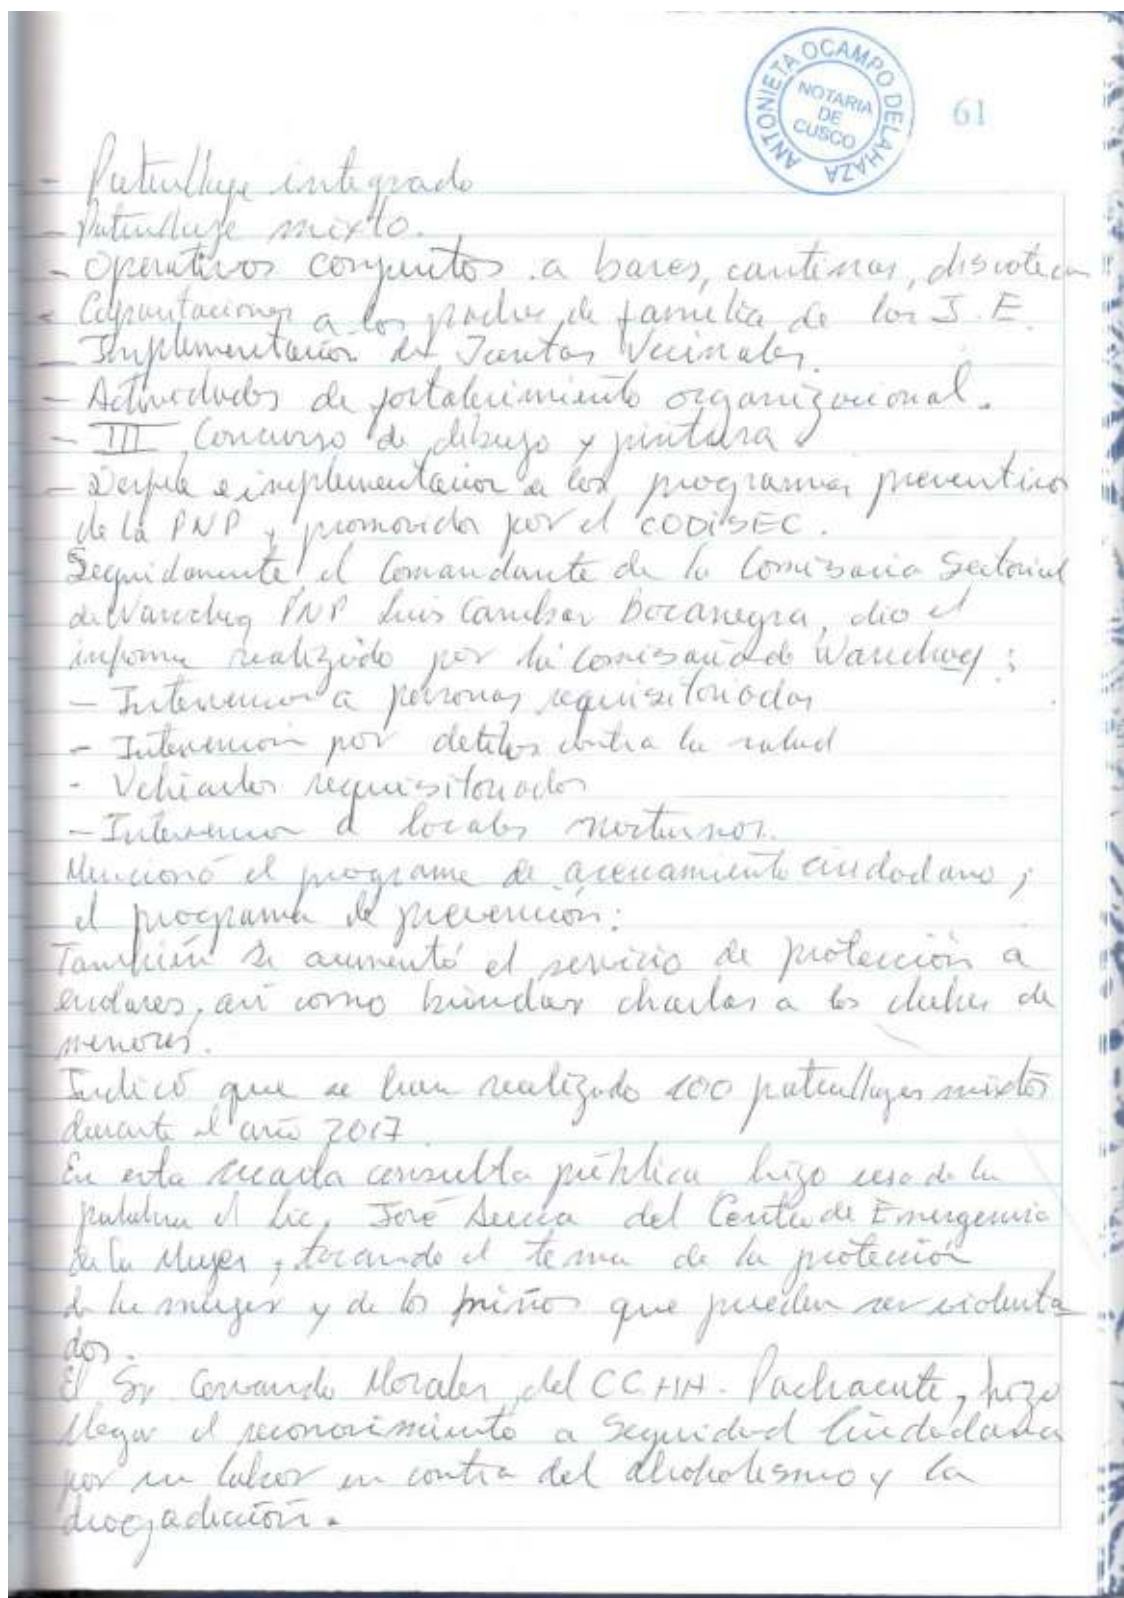 ANTONIETA OCAMPO DELAHAZA
NOTARIA
DE
CUSCO
61
- Patrullaje integrado
- Patrullaje mixto.
- Operativos conjuntos a bares, cantinas, discotecas
- Capacitaciones a los padres de familia de las I.E.
- Implementación de Juntas Vecinales.
- Actividades de fortalecimiento organizacional.
- III Concurso de dibujo y pintura
- e implementacion a los programas preventivos
de la PNP y promovidos por el CODISEC.
Seguidamente el Comandante de la Comisaria Sectorial
de Wanchaq PNP Luis Bocanegra, dio el
informe realizado por la comisaria de Wanchaq:
- Intervencion a personas requisitoriadas
- Intervencion por delitos contra la salud
- Vehiculos requisitoriados
- Intervencion a locales nocturnos.
Mencionó el programa de acercamiento ciudadano;
el programa de prevención:
También se aumentó el servicio de protección a
escolares, asi como brindar charlas a los clubes de
menores.
Indicó que se han realizado 100 patrullajes mixtos
durante el año 2017
En esta cuarta consulta pública hizo uso de la
palabra el Lic. José del Centro de Emergencia
de la Mujer, tocando el tema de la protección
de la mujer y de los niños que pueden ser violenta
dos.
El Sr. Morales del CC.HH. Pachacute, hizo
llegar el reconocimiento a Seguridad Ciudadana
por su labor en contra del alcoholismo y la
drogadicción.